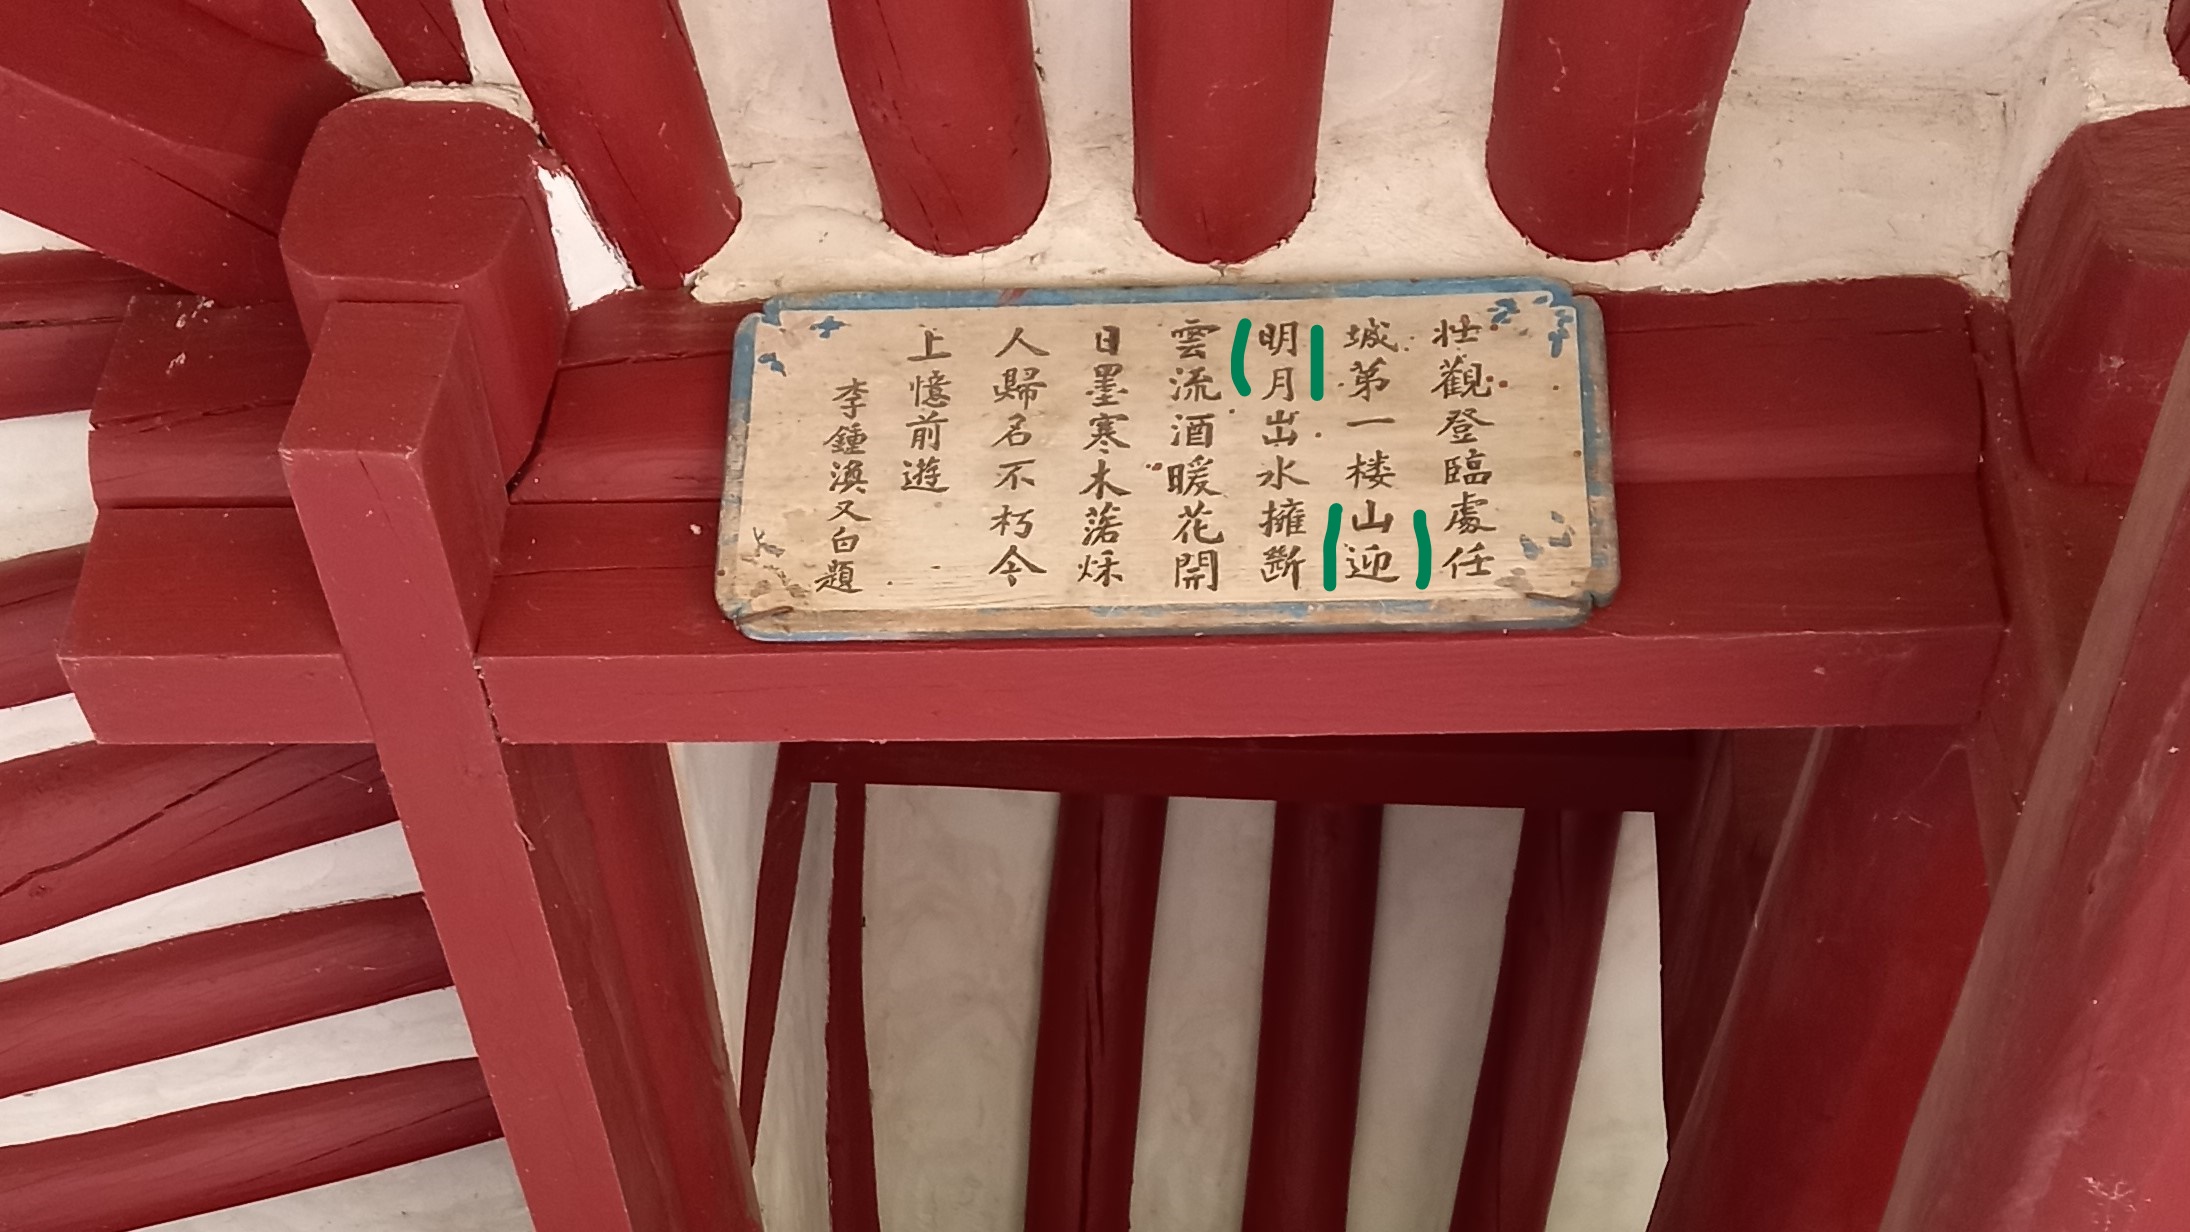 壯觀登臨處任
城第一楼山迎
明月出水擁斷
雲流酒暖花開
日墨寒木落秌
人歸名不朽今
上憶前遊
李鍾渙又白題